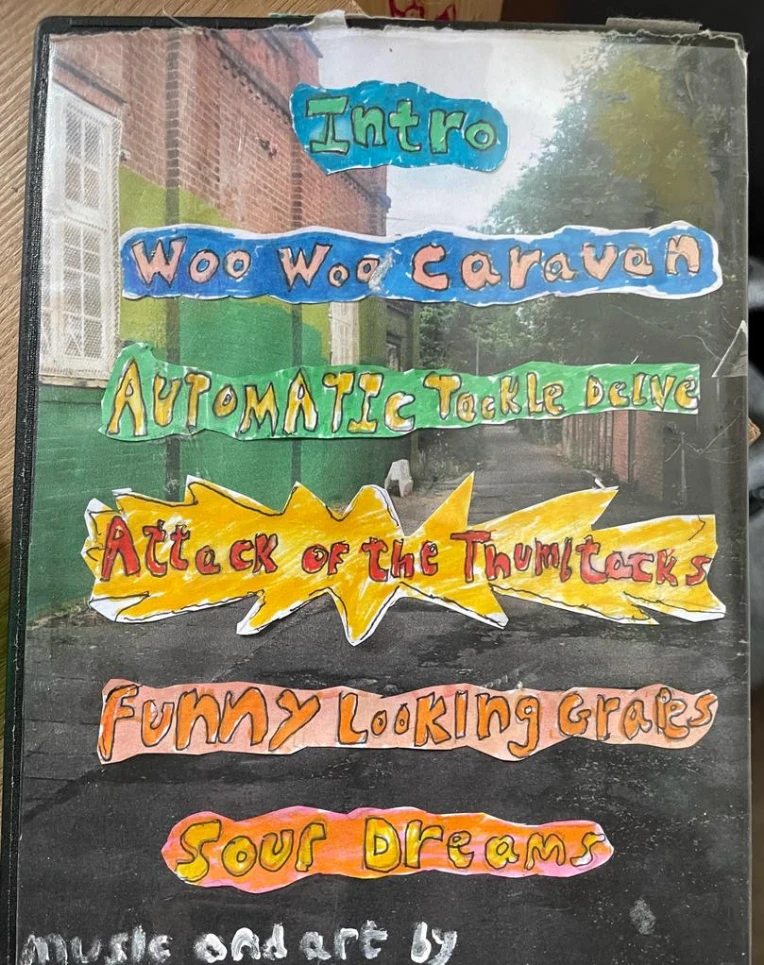 Intro
Woo Woo Caravan
AUTOMATIC Tackle Delve
Attack of the Thumbtacks
Funny Looking Grapes
Sour Dreams
music and art by